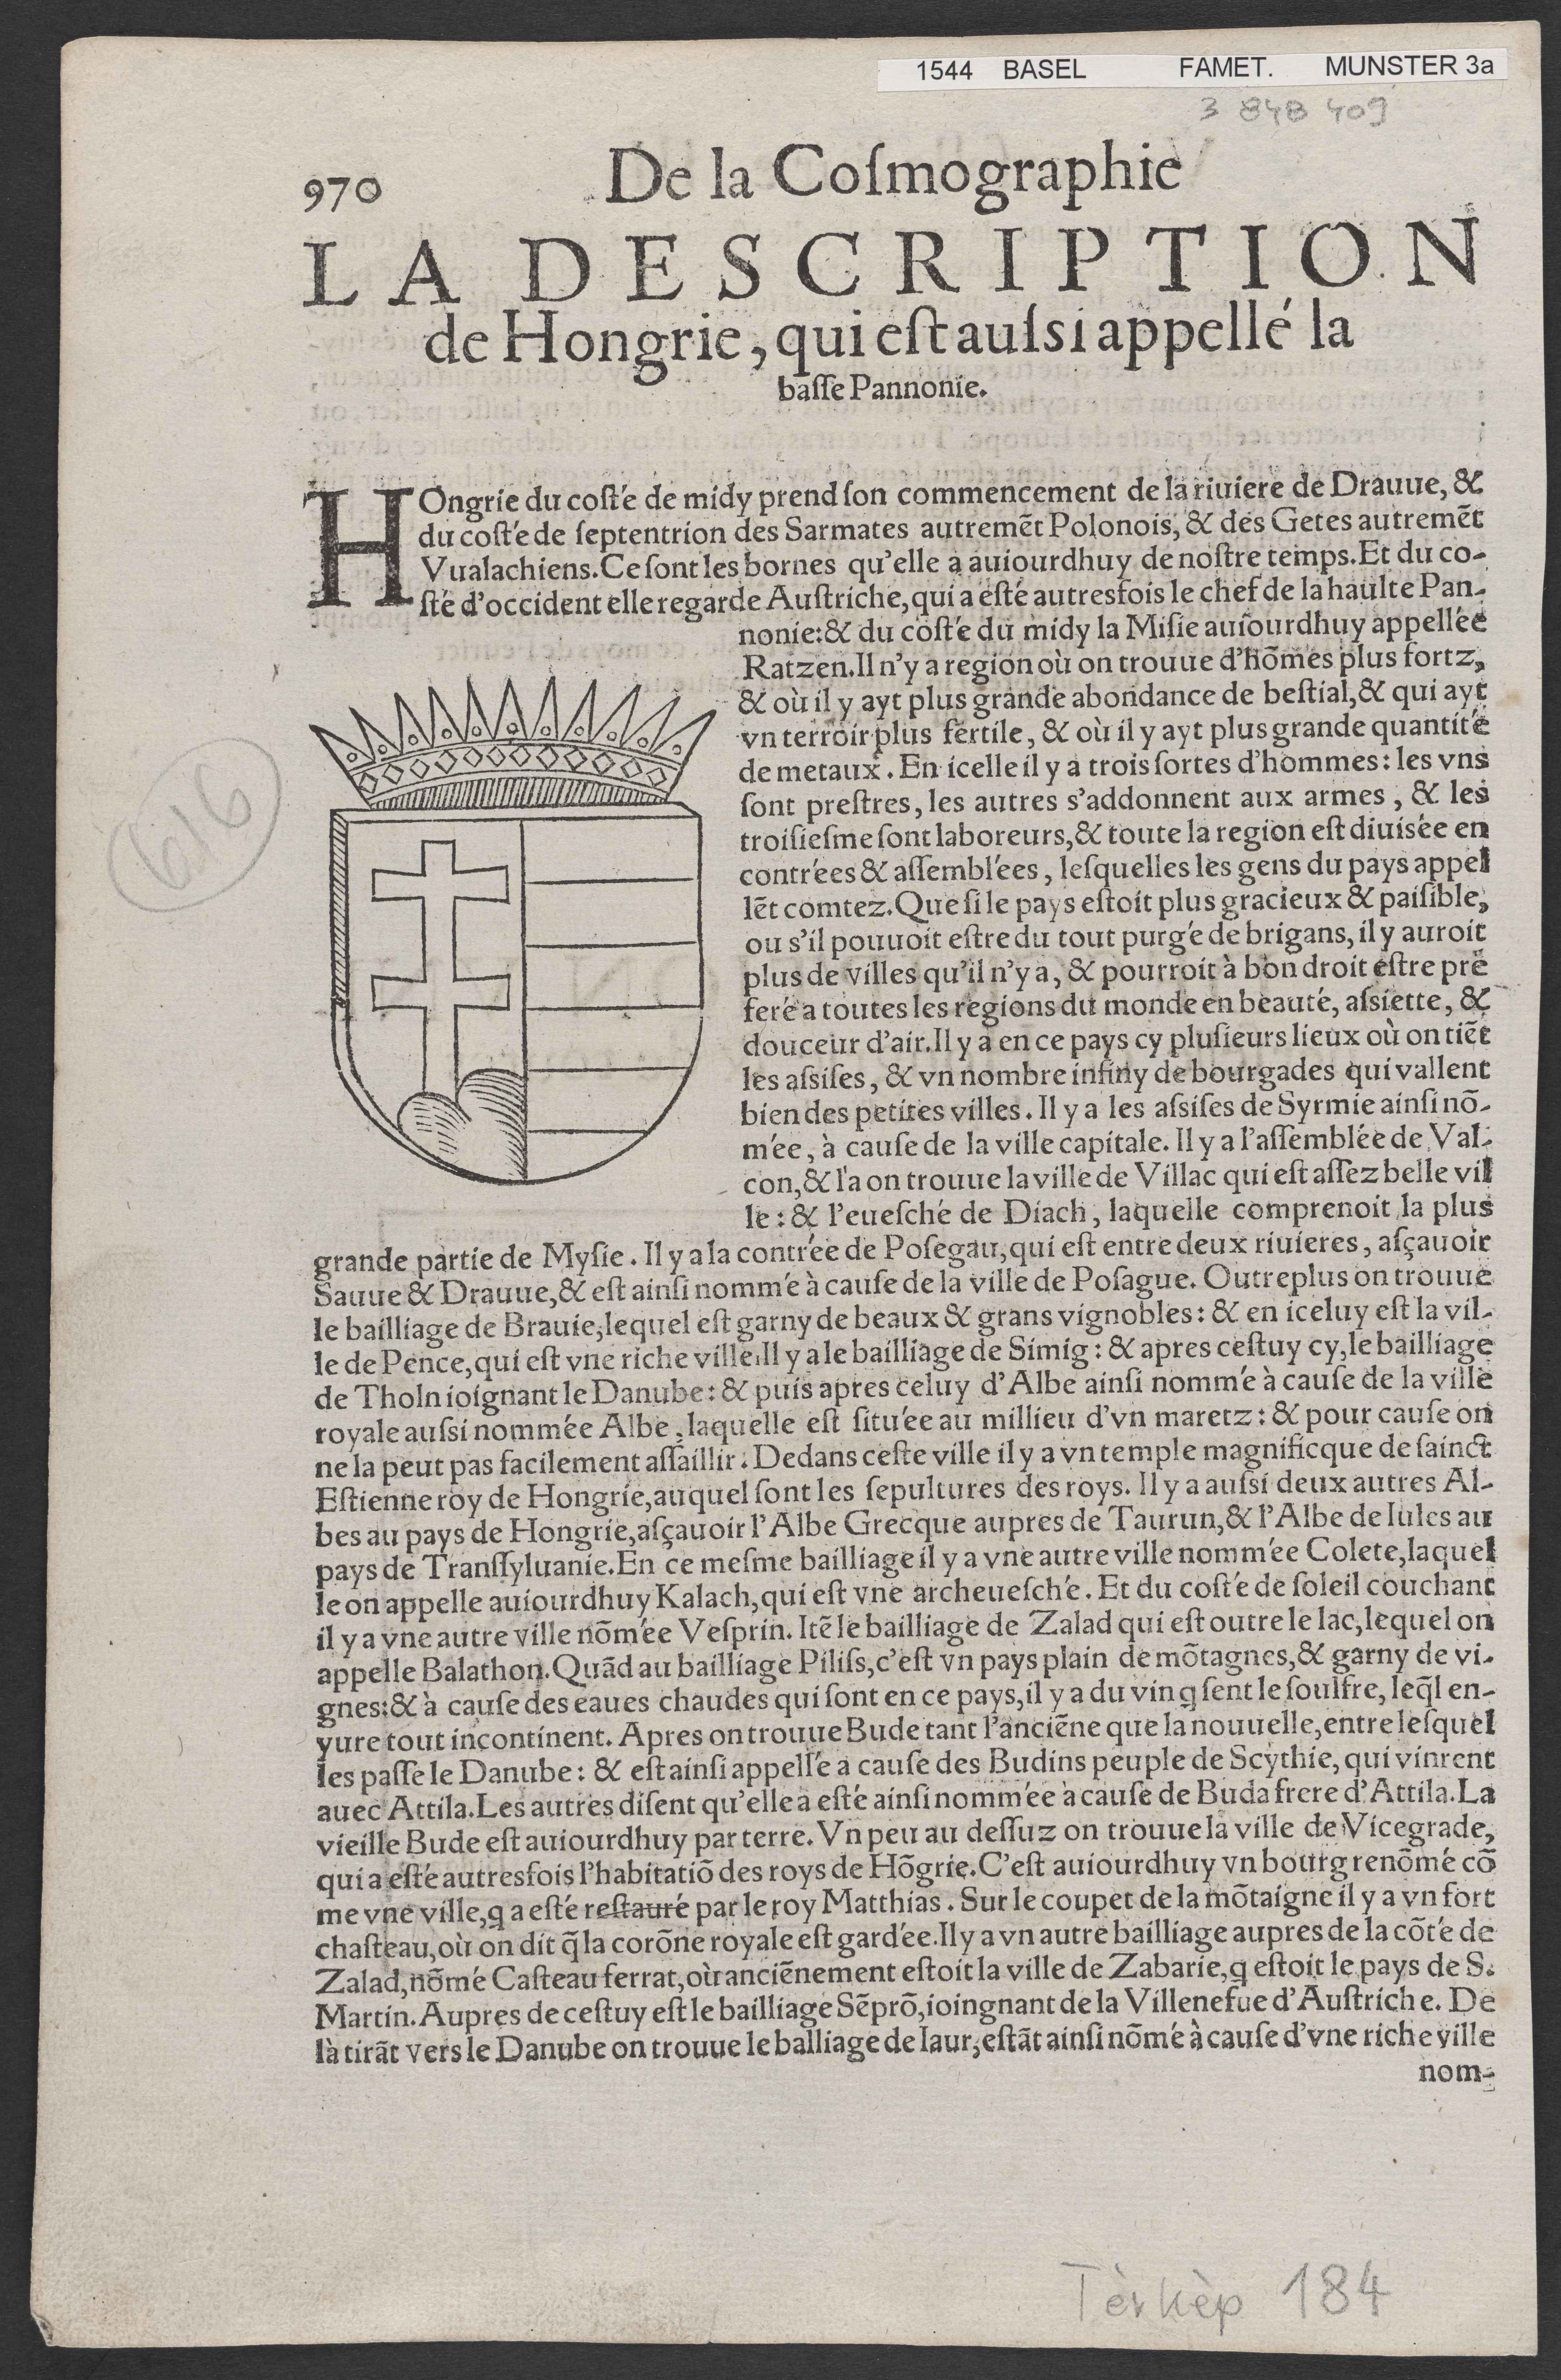 1544 BASEL FAMET. MUNSTER 3a
3 848 409
970 De la Coſmographie
LA DESCRIPTION
de Hongrie, qui eſt auſsi appellé la
baſſe Pannonie.
HOngrie du coſté de midy prend ſon commencement de la riuiere de Drauue, &
du coſté de ſeptentrion des Sarmates autremẽt Polonois, & des Getes autremẽt
Vualachiens. Ce ſont les bornes qu'elle a auiourdhuy de noſtre temps. Et du co-
ſté d'occident elle regarde Auſtriche, qui a eſté autresfois le chef de la haulte Pan-
nonie: & du coſté du midy la Miſie auiourdhuy appellée
Ratzen. Il n'y a region où on trouue d'hõmes plus fortz,
& où il y ayt plus grande abondance de beſtial, & qui ayt
vn terroir plus fertile, & où il y ayt plus grande quantité
de metaux. En icelle il y a trois ſortes d'hommes: les vns
ſont preſtres, les autres s'addonnent aux armes, & les
troiſieſme ſont laboreurs, & toute la region eſt diuisée en
contrées & aſſemblées, leſquelles les gens du pays appel
lẽt comtez. Que ſi le pays eſtoit plus gracieux & paiſible,
ou s'il pouuoit eſtre du tout purgé de brigans, il y auroit
plus de villes qu'il n'y a, & pourroit à bon droit eſtre pre
feré a toutes les regions du monde en beauté, aſsiette, &
douceur d'air. Il y a en ce pays cy pluſieurs lieux où on tiẽt
les aſsiſes, & vn nombre infiny de bourgades qui vallent
bien des petites villes. Il y a les aſsiſes de Syrmie ainſi nõ-
mée, à cauſe de la ville capitale. Il y a l'aſſemblée de Val-
con, & là on trouue la ville de Villac qui eſt aſſez belle vil
le: & l'eueſché de Diach, laquelle comprenoit la plus
grande partie de Myſie. Il y a la contrée de Poſegau, qui eſt entre deux riuieres, aſçauoir
Sauue & Drauue, & eſt ainſi nommé à cauſe de la ville de Poſague. Outreplus on trouue
le bailliage de Brauie, lequel eſt garny de beaux & grans vignobles: & en iceluy eſt la vil-
le de Pence, qui eſt vne riche ville. Il y a le bailliage de Simig: & apres ceſtuy cy, le bailliage
de Tholn ioignant le Danube: & puis apres celuy d'Albe ainſi nommé à cauſe de la ville
royale auſsi nommée Albe, laquelle eſt ſituée au millieu d'vn maretz: & pour cauſe on
ne la peut pas facilement aſſaillir. Dedans ceſte ville il y a vn temple magnificque de ſainct
Eſtienne roy de Hongrie, auquel ſont les ſepultures des roys. Il y a auſsi deux autres Al-
bes au pays de Hongrie, aſçauoir l'Albe Grecque aupres de Taurun, & l'Albe de Iules au
pays de Tranſſyluanie. En ce meſme bailliage il y a vne autre ville nommée Colete, laquel
le on appelle auiourdhuy Kalach, qui eſt vne archeueſché. Et du coſté de ſoleil couchant
il y a vne autre ville nõmée Veſprin. Itẽ le bailliage de Zalad qui eſt outre le lac, lequel on
appelle Balathon. Quãd au bailliage Piliſs, c'eſt vn pays plain de mõtagnes, & garny de vi-
gnes: & à cauſe des eaues chaudes qui ſont en ce pays, il y a du vin q ſent le ſoulfre, leq̃l en-
yure tout incontinent. Apres on trouue Bude tant l'anciẽne que la nouuelle, entre leſquel
les paſſe le Danube: & eſt ainſi appellé a cauſe des Budins peuple de Scythie, qui vinrent
auec Attila. Les autres diſent qu'elle a eſté ainſi nommée à cauſe de Buda frere d'Attila. La
vieille Bude eſt auiourdhuy par terre. Vn peu au deſſuz on trouue la ville de Vicegrade,
qui a eſté autresfois l'habitatiõ des roys de Hõgrie. C'eſt auiourdhuy vn bourg renõmé cõ
me vne ville, q a eſté reſtauré par le roy Matthias. Sur le coupet de la mõtaigne il y a vn fort
chaſteau, où on dit q̃ la corõne royale eſt gardée. Il y a vn autre bailliage aupres de la cõté de
Zalad, nõmé Caſteau ferrat, où anciẽnement eſtoit la ville de Zabarie, q eſtoit le pays de S.
Martin. Aupres de ceſtuy eſt le bailliage Sẽprõ, ioingnant de la Villenefue d'Auſtriche. De
là tirãt vers le Danube on trouue le balliage de Iaur, eſtãt ainſi nõmé à cauſe d'vne riche ville
nom-
616
Tèrkèp 184